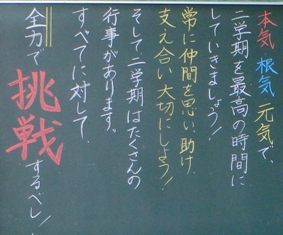 本気 根気 元気で、
二学期を最高の時間に
していきましょう!
常に仲間を思い、助け、
支え合い大切にしよう!
そして二学期はたくさんの
行事があります。
すべてに対して、
全力で挑戦するべし!